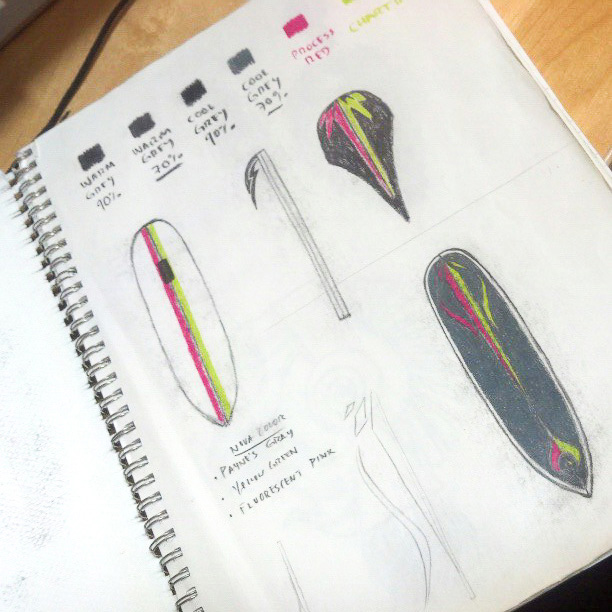 WARM
GREY
90%
WARM
GREY
70%
COOL
GREY
90%
COOL
GREY
70%
PROCESS
RED
NOVA COLOR
• PAYNE'S GRAY
• YELLOW GREEN
• FLUORESCENT PINK